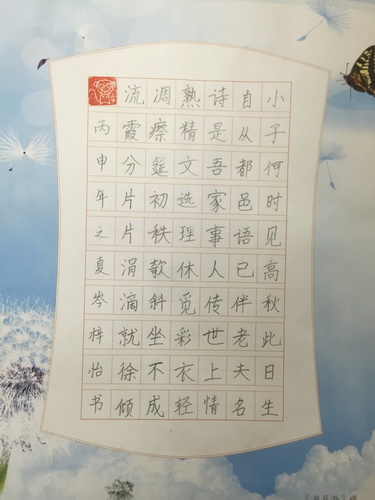 小子何时见高秋此日生
自从都邑语已伴老夫名
诗是吾家事人传世上情
熟精文选理休觅彩衣轻
凋瘵筵初秩欹斜坐不成
流霞分片片涓滴就徐倾
丙申年之夏岑梓怡书